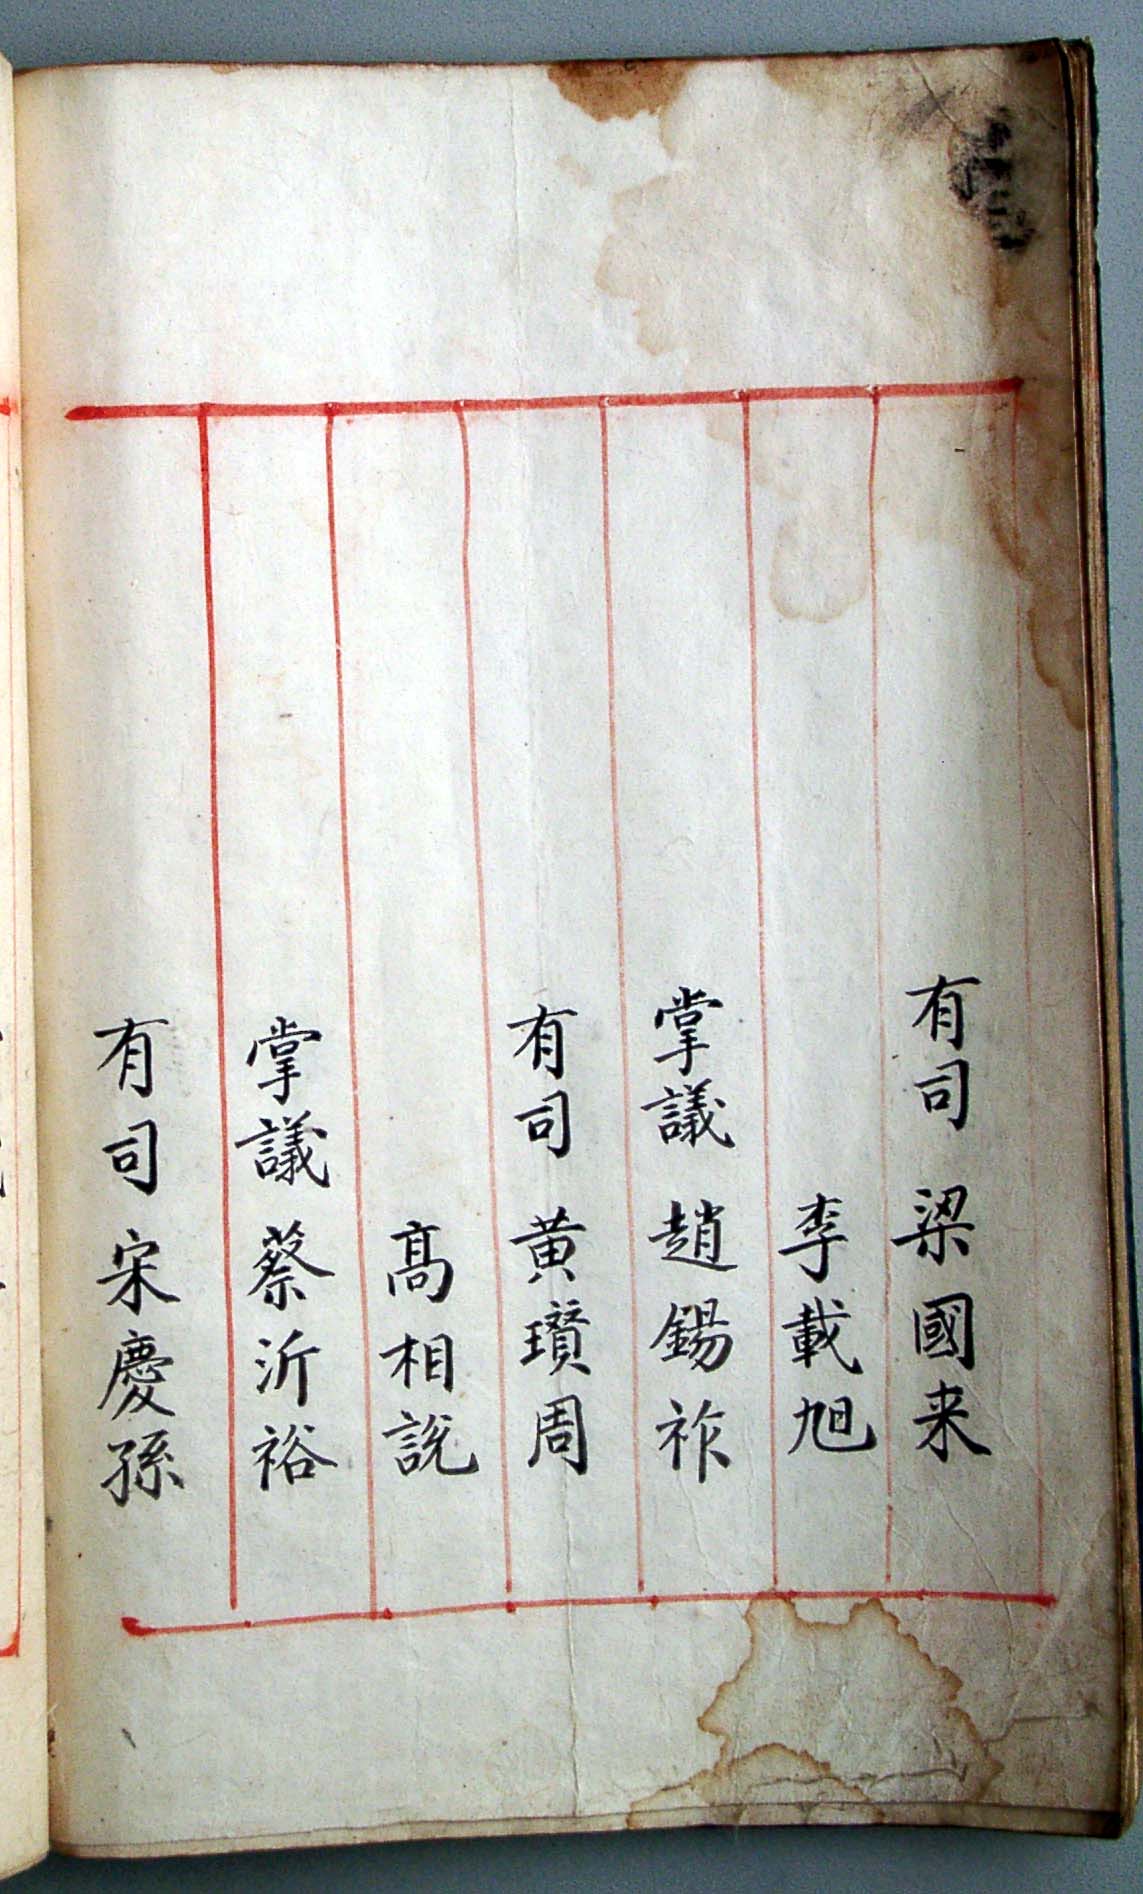 有司 梁國来
李載旭
掌議 趙錫祚
有司 黄瓚周
高相說
掌議 蔡沂裕
有司 宋慶孫